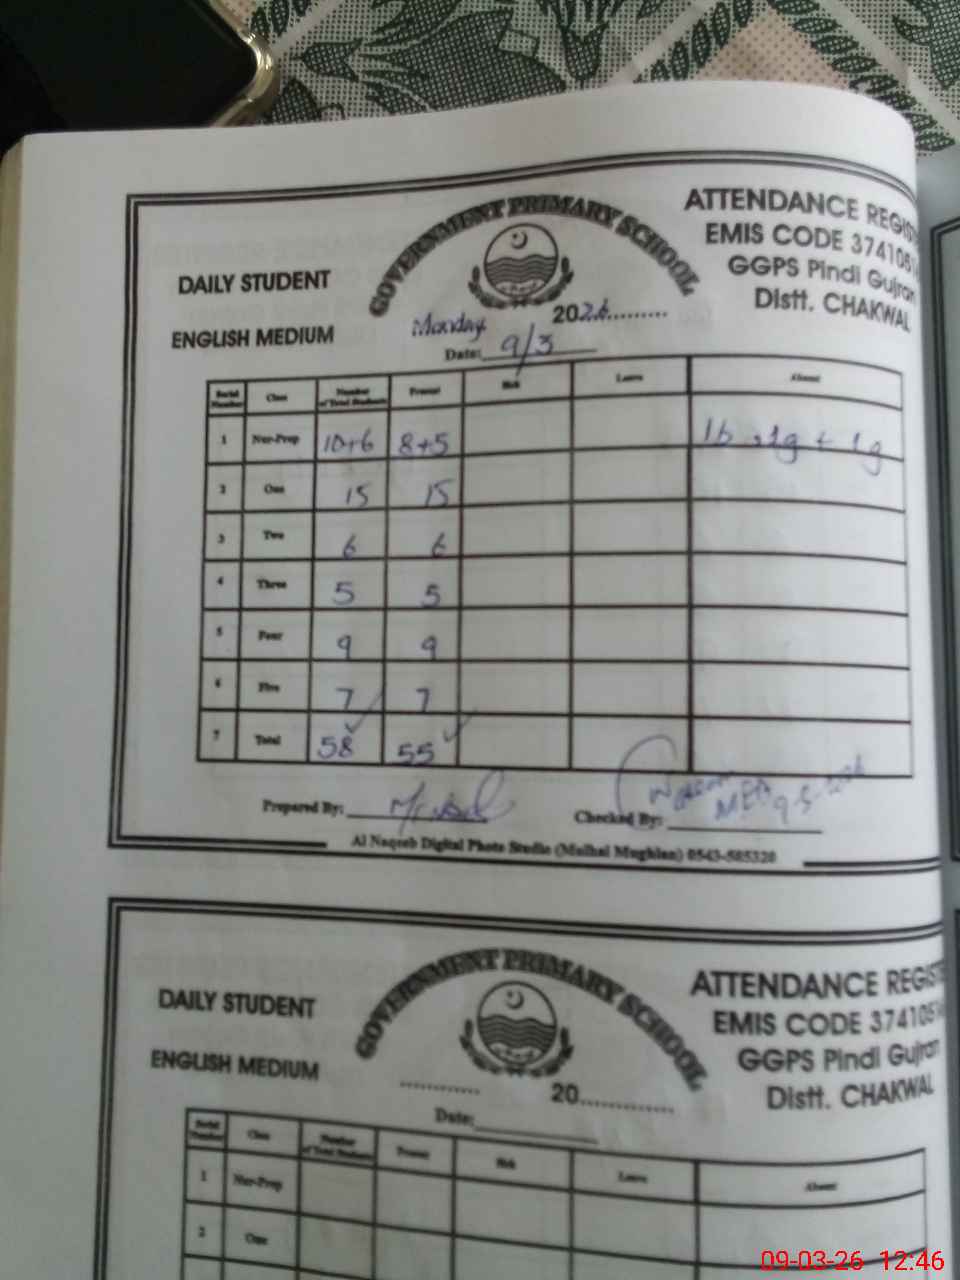 GOVERNMENT PRIMARY SCHOOL
ATTENDANCE REGIS
EMIS CODE 3741051
GGPS Pindi Gujran
Distt. CHAKWAL
DAILY STUDENT
ENGLISH MEDIUM
Monday 2026.........
Date: 9/3
Serial Number Class Number of Total Students Present Sick Leave Absent
1 Nur-Prep 10+6 8+5 1b, 1g + 1g
2 One 15 15
3 Two 6 6
4 Three 5 5
5 Four 9 9
6 Five 7 7
7 Total 58 55
Prepared By:
Checked By:
Al Naqeeb Digital Photo Studio (Mulhal Mughlan) 0543-585320
GOVERNMENT PRIMARY SCHOOL
ATTENDANCE REGISTE
EMIS CODE 3741051
GGPS Pindi Gujran
Distt. CHAKWAL
DAILY STUDENT
ENGLISH MEDIUM
............ 20.............
Date:
Serial Number Class Number of Total Students Present Sick Leave Absent
1 Nur-Prep
2 One
09-03-26 12:46